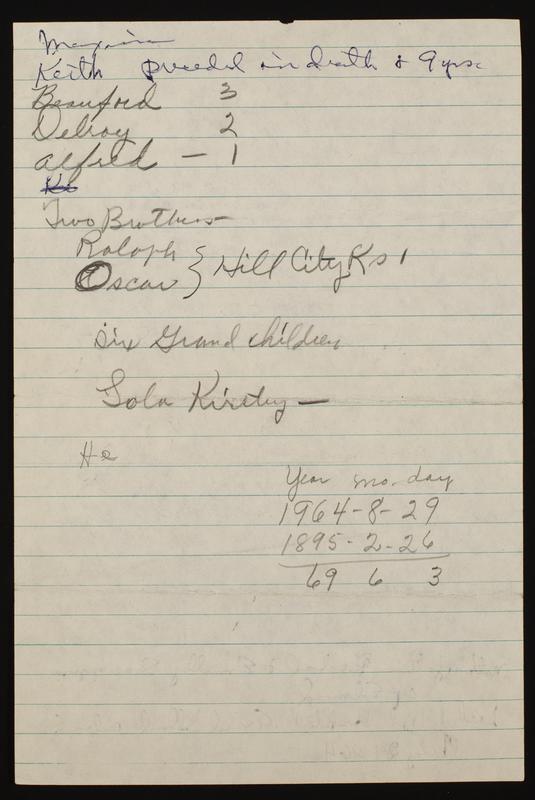 Maxine
Keith preceded in death @ 9 yrs.
Beauford 3
Delroy 2
Alfred — 1
Ke
Two Brothers
Ralaph
Oscar } Hill City Ks
Six Grand children
Lola Kirsby —
He
Year mo. day
1964-8-29
1895-2-26
69 6 3